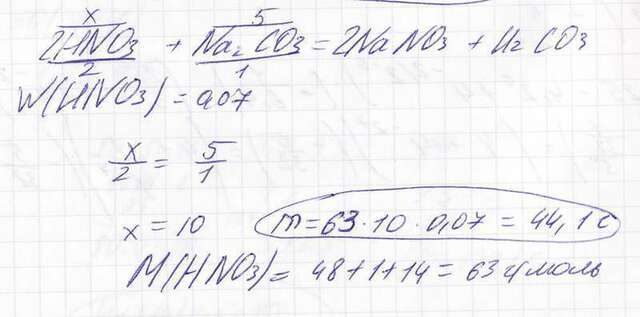 x 5
2HNO3 + Na2CO3 = 2NaNO3 + H2CO3
2 1
W(HNO3) = 0,07
x/2 = 5/1
x = 10 m = 63 · 10 · 0,07 = 44,1 г
M(HNO3) = 48 + 1 + 14 = 63 г/моль